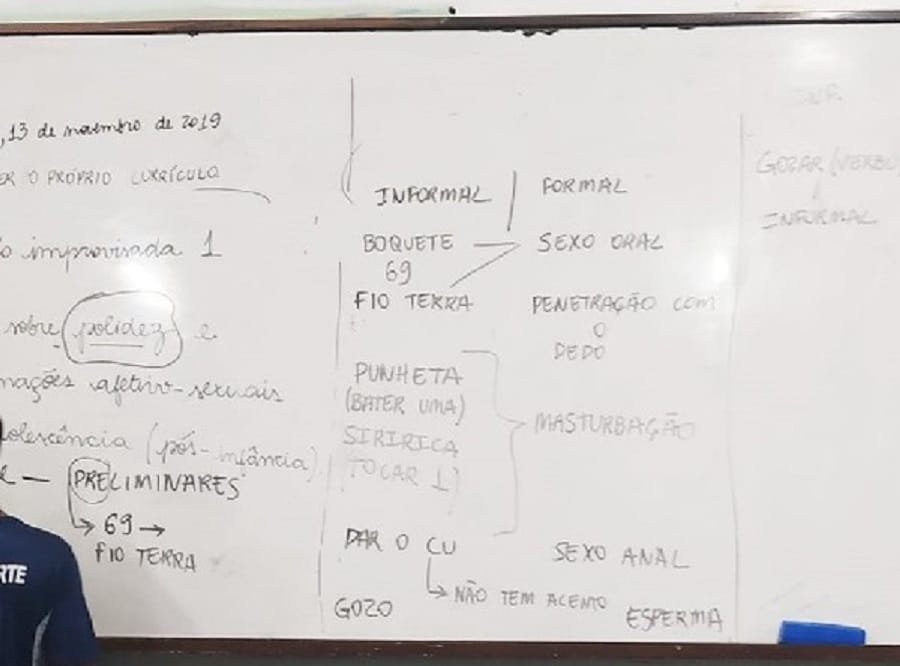 , 13 de novembro de 2019
ER O PRÓPRIO CURRÍCULO
o improvisada 1
sobre polidez e
mações afetivo-sexuais
dolescência (pós-infância)
e — PRELIMINARES
↳ 69 →
FIO TERRA
RTE
INFORMAL | FORMAL
BOQUETE — SEXO ORAL
69
FIO TERRA PENETRAÇÃO COM
O
DEDO
PUNHETA
(BATER UMA)
SIRIRICA
(TOCAR 1)
MASTURBAÇÃO
DAR O CU SEXO ANAL
↳ NÃO TEM ACENTO
GOZO ESPERMA
INF.
GOZAR (VERBO
INFORMAL